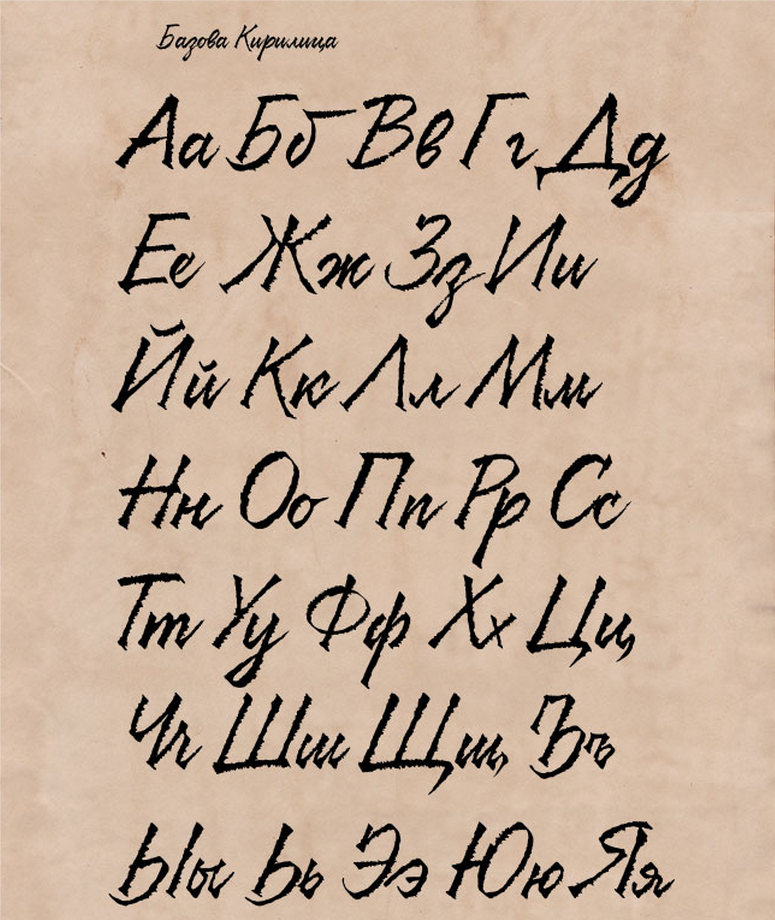 Базова Кирилица
Аа Бб Вв Гг Дд
Ее Жж Зз Ии
Йй Кк Лл Мм
Нн Оо Пп Рр Сс
Тт Уу Фф Хх Цц
Чч Шш Щщ Ъъ
Ыы Ьь Ээ Юю Яя